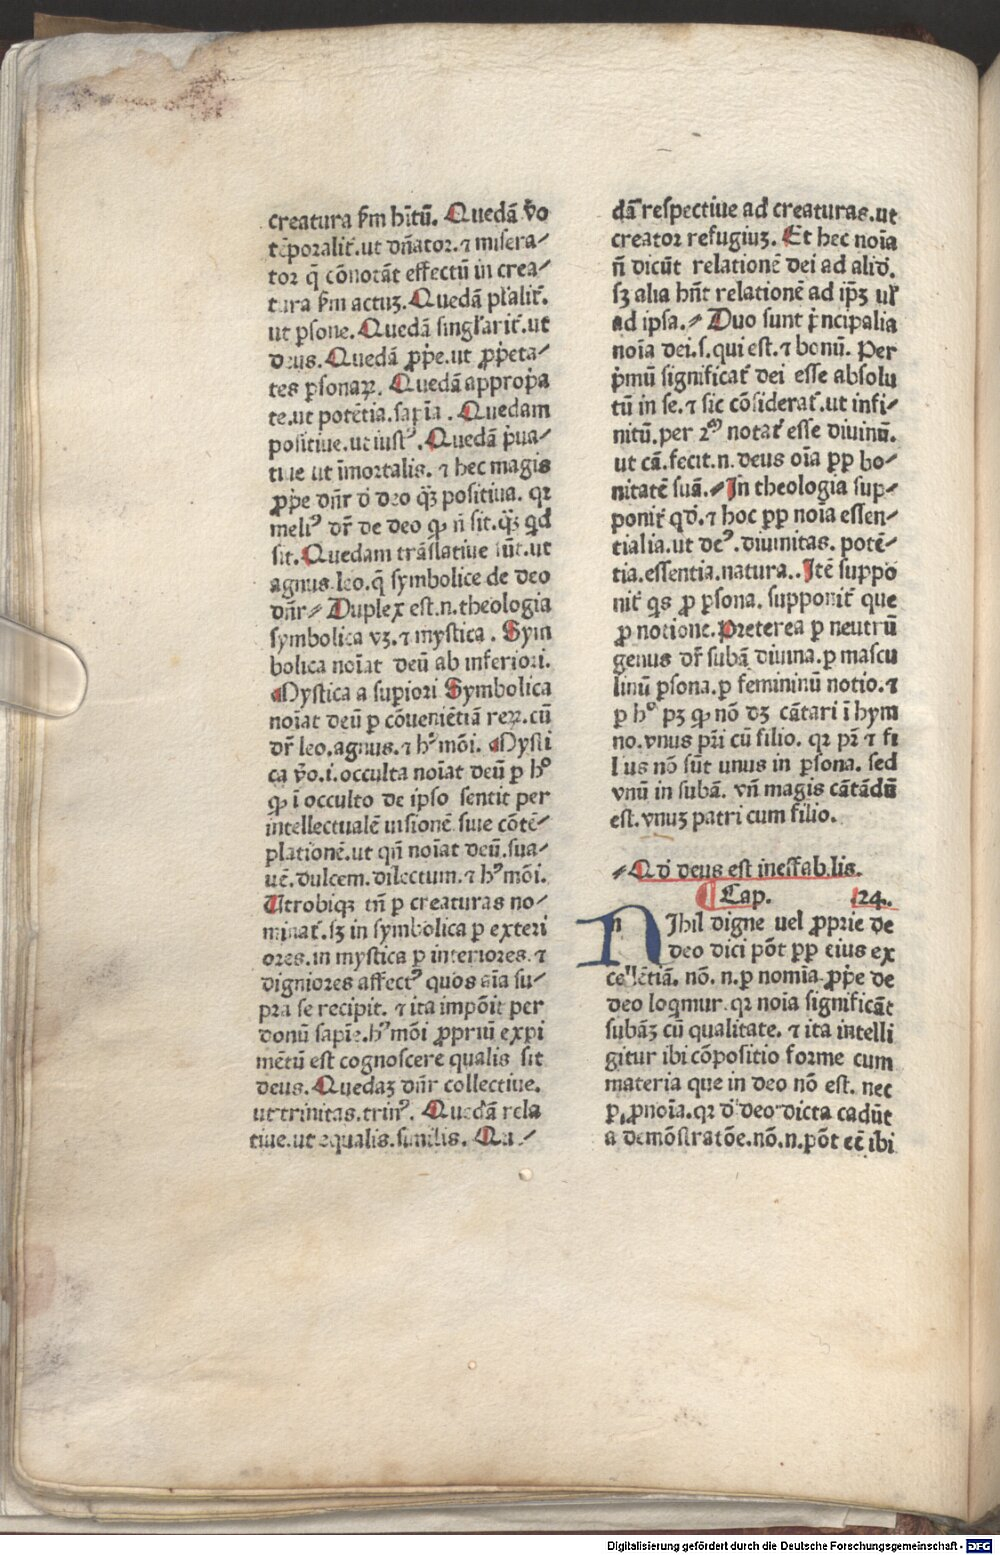 creatura ẜm hītū. Quedā v̄o
tēporalit̄.ut dn̄ator.⁊ misera⸗
tor q̄ cōnotāt effectū in crea⸗
tura ẜm actuꝫ. Quedā pl̄alit̄.
ut ꝑsone. Quedā singl̄arit̄.ut
deus. Quedā ꝓp̄e.ut ꝓp̄eta⸗
tes ꝑsonaꝝ. Quedā appropͥa
te.ut potētia.sapīa. Quedam
positiue.ut iustꝰ. Quedā pͥua⸗
tiue ut īmortalis. ⁊ hec magis
ꝓp̄e dn̄r d̄ deo qͣꝫ positiua. qꝛ
meliꝰ dr̄ de deo ꝙ n̄ sit.qͣꝫ qd̄
sit. Quedam trāslatiue sūt.ut
agnus.leo.q̄ symbolice de deo
dn̄r⸗ Duplex est.n.theologia
symbolica vꝫ.⁊ mystica. Sym
bolica noīat deū ab inferiori.
Mystica a suꝑiori Symbolica
noīat deū ꝑ cōueniētiā reꝝ.cū
dr̄ leo.agnus.⁊ hꝰ mōi. Mysti
ca v̄o.i.occulta noīat deū ꝑ hº
ꝙ ī occulto de ipso sentit per
intellectualē uisionē siue cōtē⸗
plationē.ut qn̄ noīat deū.sua⸗
uē.dulcem.dilectum.⁊ hꝰ mōi.
Utrobiqꝫ tn̄ ꝑ creaturas no⸗
minat̄.sꝫ in symbolica ꝑ exteri
ores.in mystica ꝑ interiores.⁊
digniores affectꝰ quos aīa su⸗
pra se recipit. ⁊ ita impōit per
donū sapīe.hꝰ mōi ꝓpriū expi
mētū est cognoscere qualis sit
deus. Quedaꝫ dn̄r collectiue.
ut trinitas.trinꝰ. Quedā rela
tiue.ut equalis.similis. Qu⸗
dā respectiue ad creaturas.ut
creator refugiuꝫ. Et hec noīa
n̄ dicūt relationē dei ad alid̄.
sꝫ alia hn̄t relationē ad ip̄ꝫ ul̄
ad ipsa.⸗ Duo sunt pͥncipalia
noīa dei.s.qui est.⁊ bonū. Per
pͥmū significat̄ dei esse absolu
tū in se.⁊ sic cōsiderat̄.ut infi⸗
nitū.per 2ᵐ notat̄ esse diuinū.
ut cā.fecit.n.deus oīa ꝓp bo⸗
nitatē suā.⸗ In theologia sup⸗
ponit̄ qd̄.⁊ hoc ꝓp noīa essen⸗
tialia.ut deꝰ.diuinitas. potē⸗
tia.essentia.natura.. Itē suppo
nit̄ qͥs ꝓ ꝑsona. supponit̄ que
ꝓ notione. Preterea ꝑ neutrū
genus dr̄ subā diuina.ꝑ mascu
linū ꝑsona.ꝑ femininū notio.⁊
ꝑ hº pꝫ ꝙ nō dꝫ cātari ī hym
no.vnus pr̄i cū filio. qꝛ pr̄ ⁊ fi
lius nō sūt unus in ꝑsona. sed
vnū in subā. vn̄ magis cātādū
est.vnuꝫ patri cum filio.
⸗Qd̄ deus est ineffabilis.
¶ Cap. 124.
NIhil digne uel ꝓprie de
deo dici pōt ꝓp eius ex
cellētiā. nō. n.ꝑ nomīa ꝓp̄e de
deo loqͥmur.qꝛ noīa significāt
subāꝫ cū qualitate. ⁊ ita intelli
gitur ibi cōpositio forme cum
materia que in deo nō est. nec
ꝑ ꝓnoīa.qꝛ d̄ deo dicta cadūt
a demōstratōe.nō.n.pōt eē ibi
Digitalisierung gefördert durch die Deutsche Forschungsgemeinschaft - DFG